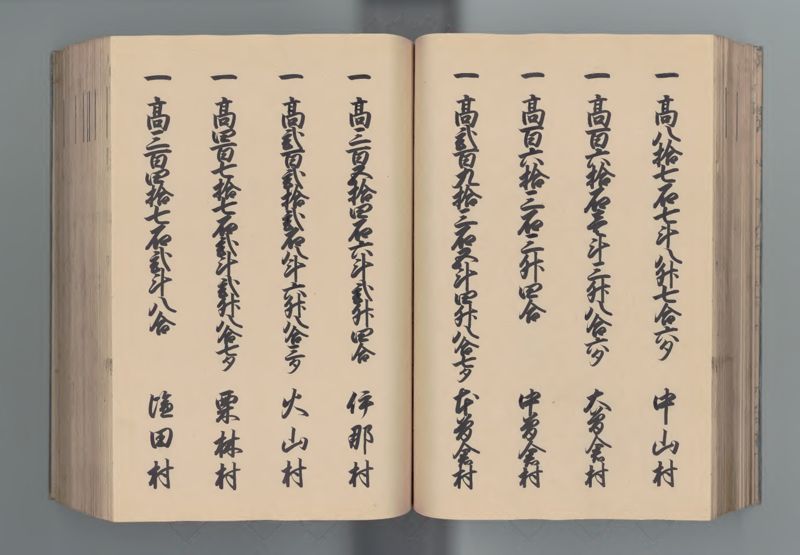 一 高八拾七石七斗八升七合六夕 中山村
一 高百六拾石壱斗三升八合六夕 大曽舎村
一 高百六拾三石三升四合 中曽舎村
一 高弐百九拾三石五斗四升八合七夕 本曽舎村
一 高三百五拾四石六斗弐升四合 伊那村
一 高弐百弐拾弐石八斗六升八合三夕 火山村
一 高四百七拾七石弐斗弐升八合七夕 栗林村
一 高三百四拾七石弐斗八合 塩田村